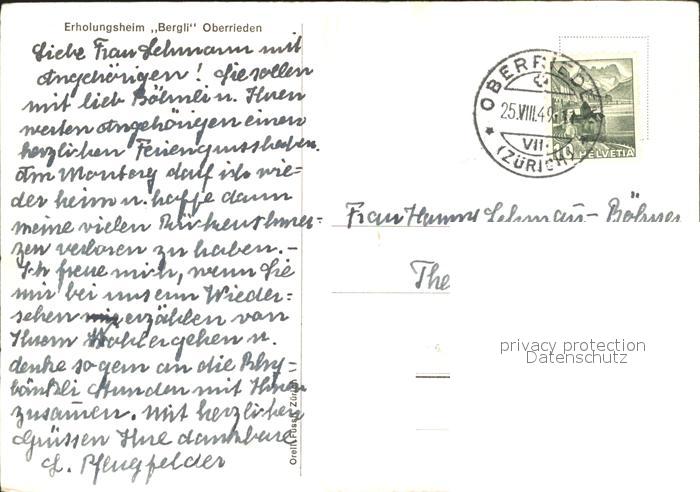 Erholungsheim „Bergli“ Oberrieden
Liebe Frau Lehmann mit
Angehörigen! Sie sollen
mit lieb Böhmli u. Ihren
werten Angehörigen einen
herzlichen Feriengruss haben.
Am Montag darf ich wie=
der heim u. hoffe dann
meine vielen Rückenschmer=
zen verloren zu haben. –
Ich freue mich, wenn Sie
mir bei unserm Wieder=
sehen erzählen von
Ihrem Wohlergehen u.
denke so gern an die
bänkli Stunden mit Ihnen
zusamen. Mit herzlichen
Grüssen Ihre dankbare
L. Pflugfelder
Orell Füssli Zürich
OBERRIEDEN
25.VIII.49.
VII
(ZÜRICH)
10 HELVETIA
Frau Hanny Lehmann-Böhmer
The
privacy protection
Datenschutz